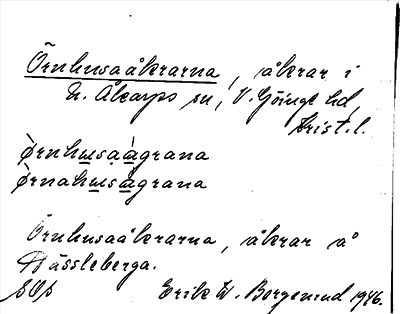 Örnhusaåkrarna, åkrar i
N. Åkarps sn, V. Göinge hd,
Krist. l.
Ørnhusaågrana
Ørnahusagrana
Örnhusaåkrarna, åkrar å
Hässleberga.
Erik W. Borgemud 1946.